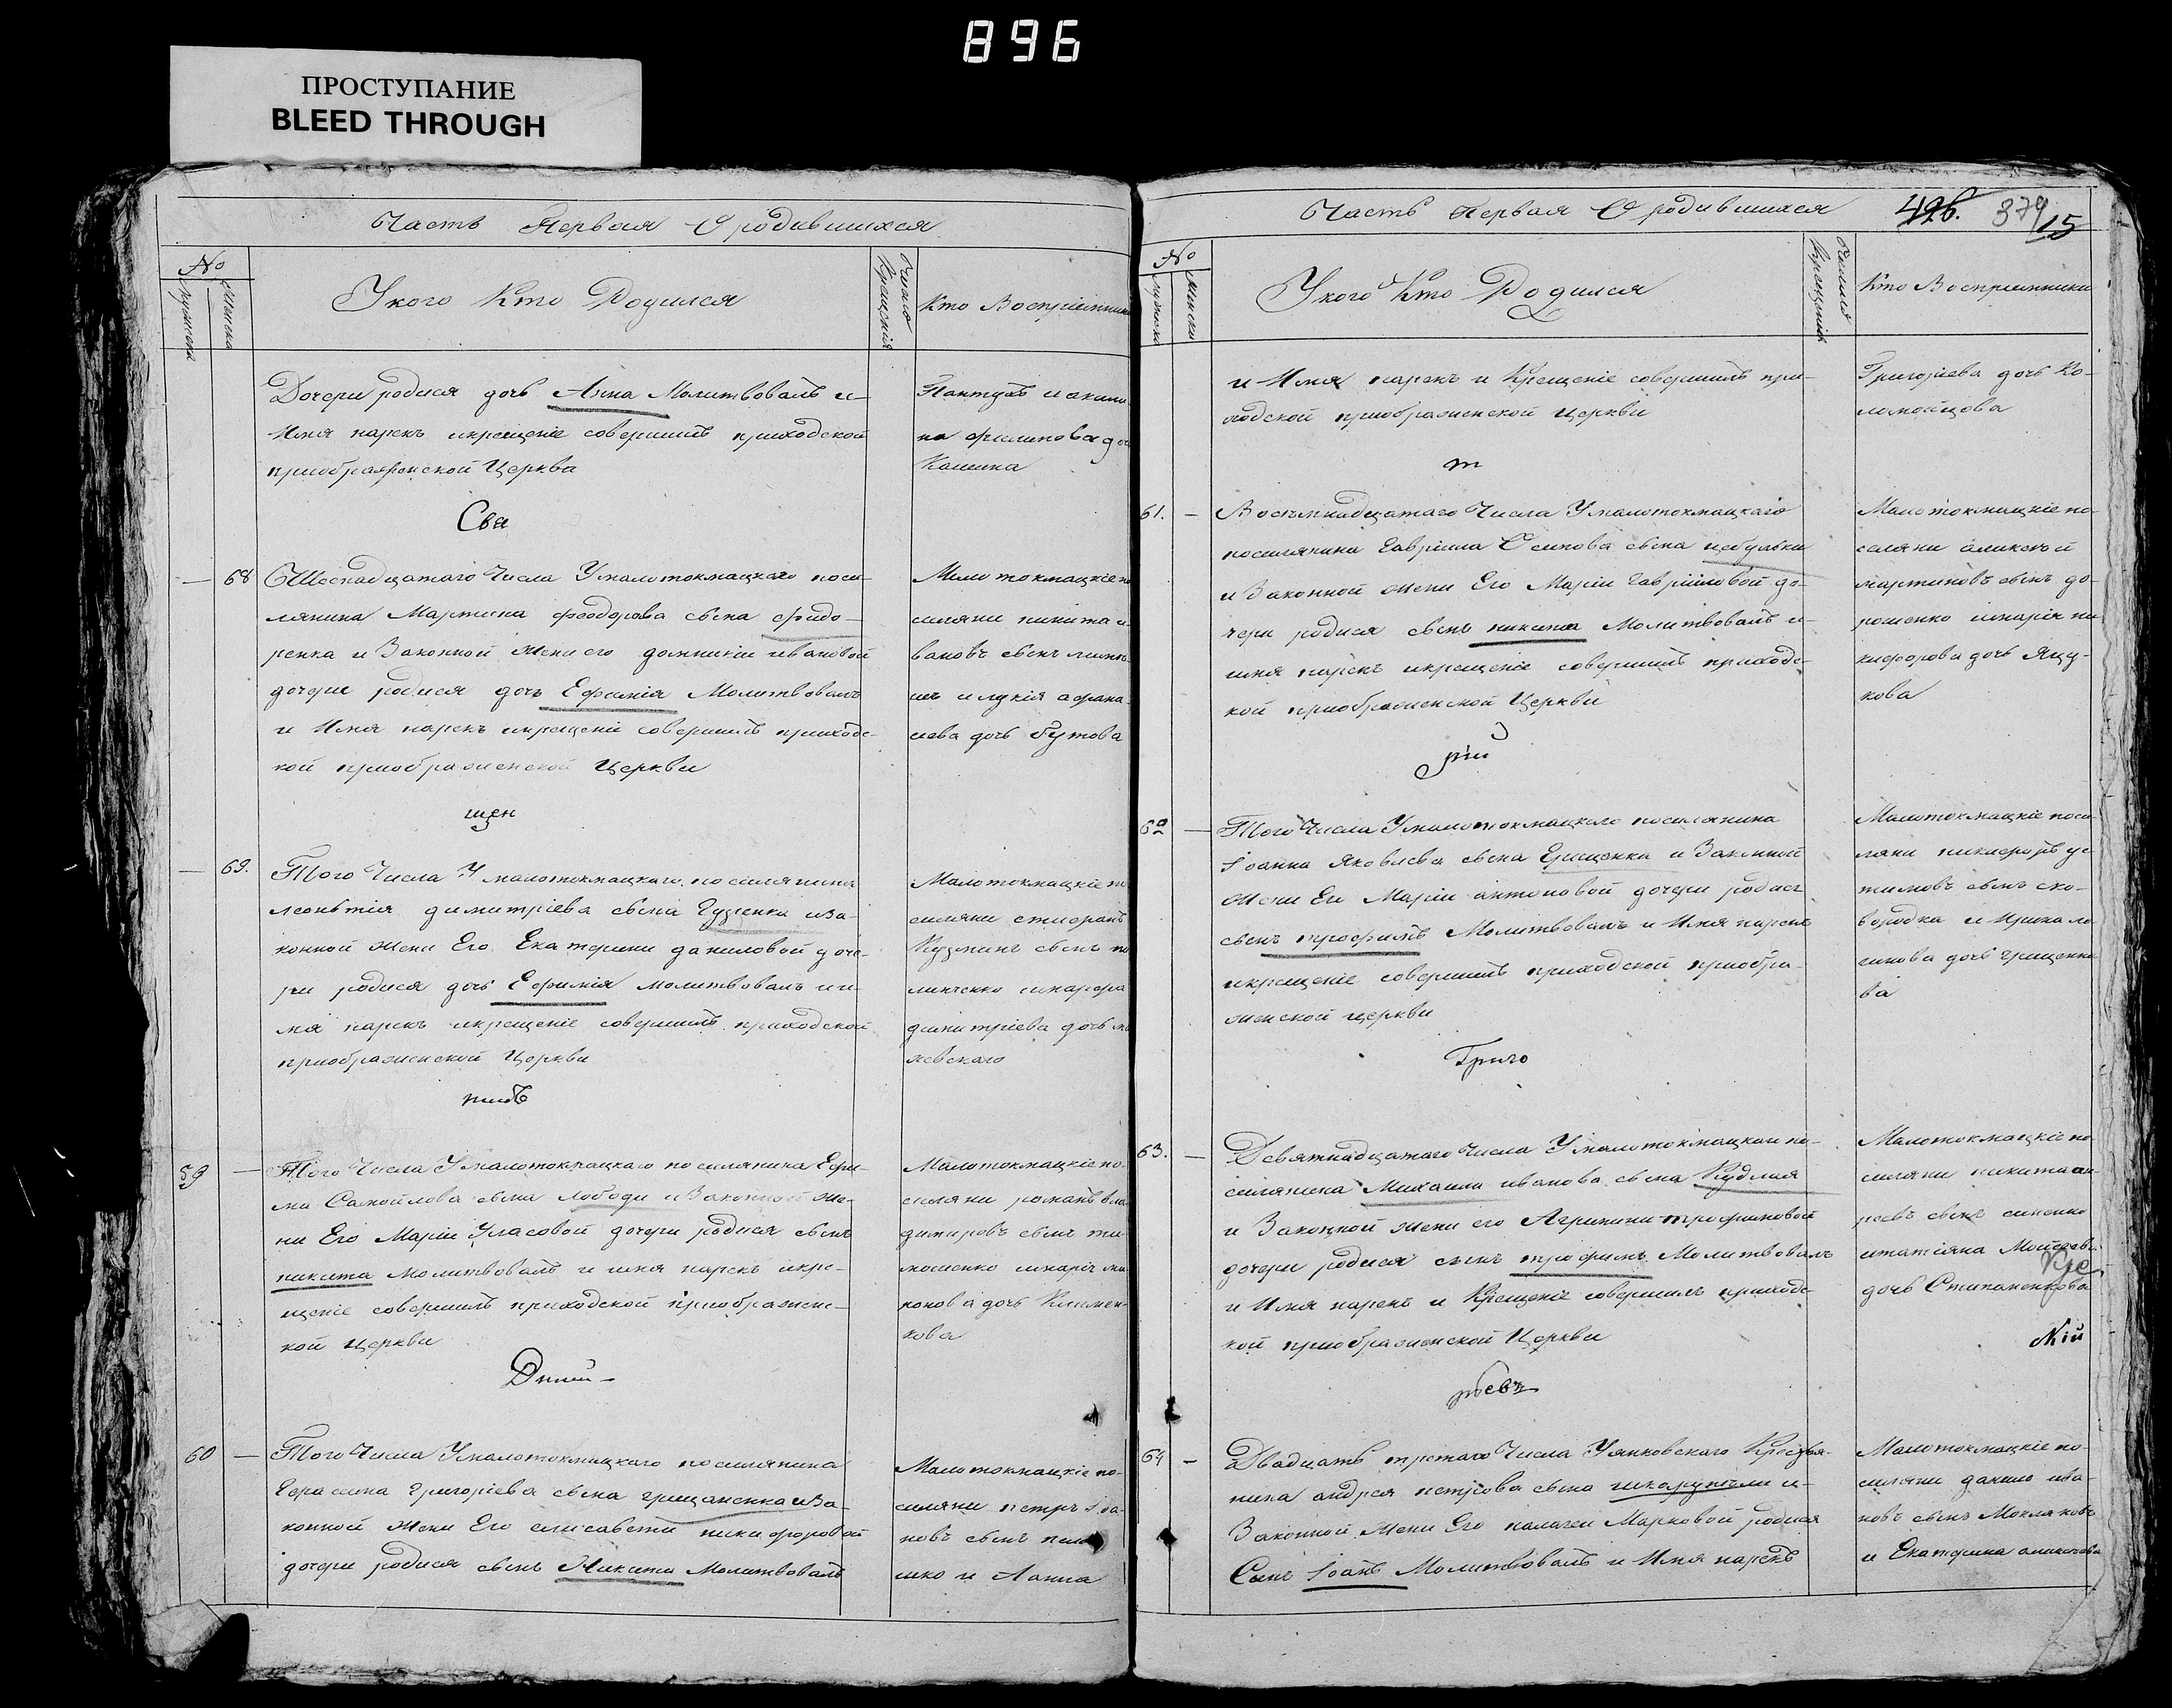 896
ПРОСТУПАНИЕ
BLEED THROUGH
Часть Первая О родившихся
№
мужеска
женска
Укого Кто Родился
Число Крещенія
Кто Воспріемники
Дочери родися дочь Анна Молитвовалъ и
Имя нарекъ икрещеніе совершилъ приходской
приображенской Церкви
на филипова доч
Кашина
Свя
68
Шеснадцатаго Числа Умалотокмацкаго посе-
лянина Мартина феодорова сына фидо-
ренка и Законной жени его домникіи ивановой
дочери родися дочь Ефимія Молитвовалъ
и Имя нарекъ икрещеніе совершилъ приходс-
кой приображенской Церкви
Малотокмацкіе по
селяни никита и-
вановъ сынъ
илукія афана-
сиева дочь бутова
щен
69.
Того Числа Умалотокмацкаго поселянина
леонтія димитріева сына Гузенка иЗа-
конной жени Его Екатерини даниловой доче-
ри родися дочь Ефимія молитвовалъ и и-
мя нарекъ икрещеніе совершилъ приходской
приображенской Церкви
Малотокмацкіе по
селяни стефанъ
Кузминъ сынъ по
линенко имарфа
димитріева дочь
никъ
59
Того Числа Умалотокмацкаго поселянина Ефи-
ма Самойлова сына лободи иЗаконной же-
ни Его Маріи Уласовой дочери родися сынъ
никита Молитвовалъ и имя нарекъ икре-
щеніе совершилъ приходской приображенс-
кой Церкви
Малотокмацкіе по-
селяни романъ вла
димировъ сынъ ти-
мошенко имарія
дочь Климен-
кова
60
Того Числа Умалотокмацкаго поселянина
Герасима Григоріева сына грищаненка иЗа-
конной жени Его елисавети никифоровой
дочери родися сынъ Никита Молитвовалъ
Малотокмацкіе по-
селяни петръ іоа-
новъ сынъ
шко и Анна
Часть Первая О родившихся
426. 379
15
№
мужеска
женска
Укого Кто Родился
Число Крещенія
Кто Воспріемники
и Имя нарекъ и Крещеніе совершилъ при-
ходской приображенской Церкви
Григоріева дочь Ко-
ломойцова
61.
Восемнадцатаго Числа Умалотокмацкаго
поселянина Гавріила Осипова сына цебульки
и Законной жени Его Маріи Гавріиловой до-
чери родися сынъ никита Молитвовалъ и
имя нарекъ икрещеніе совершилъ приходс-
кой приображенской Церкви
Малотокмацкіе по-
селяни аликсей
мартиновъ сынъ до-
рошенко имарія ни
кифорова дочь Яцу-
кова
рій
62
Того Числа Умалотокмацкаго поселянина
Іоанна Яковлева сына Грищенка и Законной
жени Его Маріи антоновой дочери родися
сынъ трофимъ Молитвовалъ и Имя нарекъ
икрещеніе совершилъ приходской приобра-
женской церкви
Малотокмацкіе посе-
ляни никифоръ ус-
тимовъ сынъ ско-
вородка и ирина
сипова дочь грищенко-
ва
Григо
63.
Девятнадцатаго Числа Умалотокмацкаго по-
селянина Михаила иванова сына Кудлая
и Законной жени его Агрипини трофимовой
дочери родися сынъ трофимъ Молитвовалъ
и Имя нарекъ и Крещеніе совершилъ приходс-
кой приображенской Церкви
Малотокмацкіе по
селяни никита ан-
реевъ сынъ синенко
итатіяна Мойсеева
дочь Стипаненкова
рьевъ
64
Двадцать третаго Числа Уянковскаго Крестья-
нина андрея петрова сына шкарупъли и
Законной жени Его палагеи Марковой родися
Синъ Іоанъ Молитвовалъ и Имя нарекъ
Малотокмацкіе по-
селяни данило ива-
новъ сынъ Мокляковъ
и Екатерина аликсеева